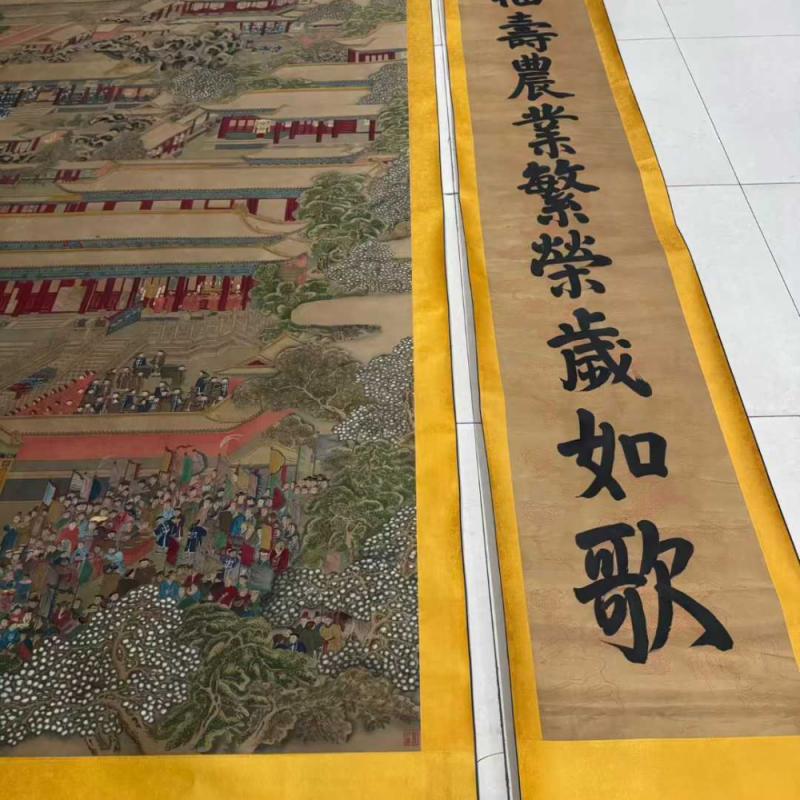 福壽農業繁榮歲如歌